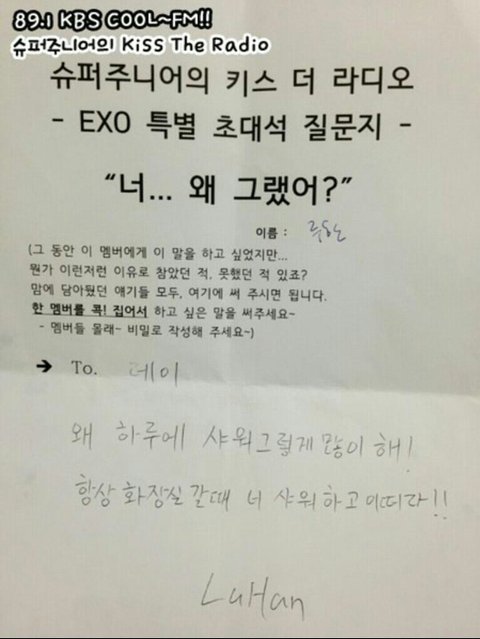 89.1 KBS COOL~FM!!
슈퍼주니어의 KiSS The RADiO
슈퍼주니어의 키스 더 라디오
- EXO 특별 초대석 질문지 -
“너... 왜 그랬어?”
이름 : 루한
(그 동안 이 멤버에게 이 말을 하고 싶었지만...
뭔가 이런저런 이유로 참았던 적, 못했던 적 있죠?
맘에 담아뒀던 얘기들 모두, 여기에 써 주시면 됩니다.
한 멤버를 콕! 집어서 하고 싶은 말을 써주세요~
- 멤버들 몰래~ 비밀로 작성해 주세요~)
➔ To. 레이
왜 하루에 샤워그렇게 많이 해!
항상 화장실 갈때 너 샤워하고 이띠다!!
LuHan